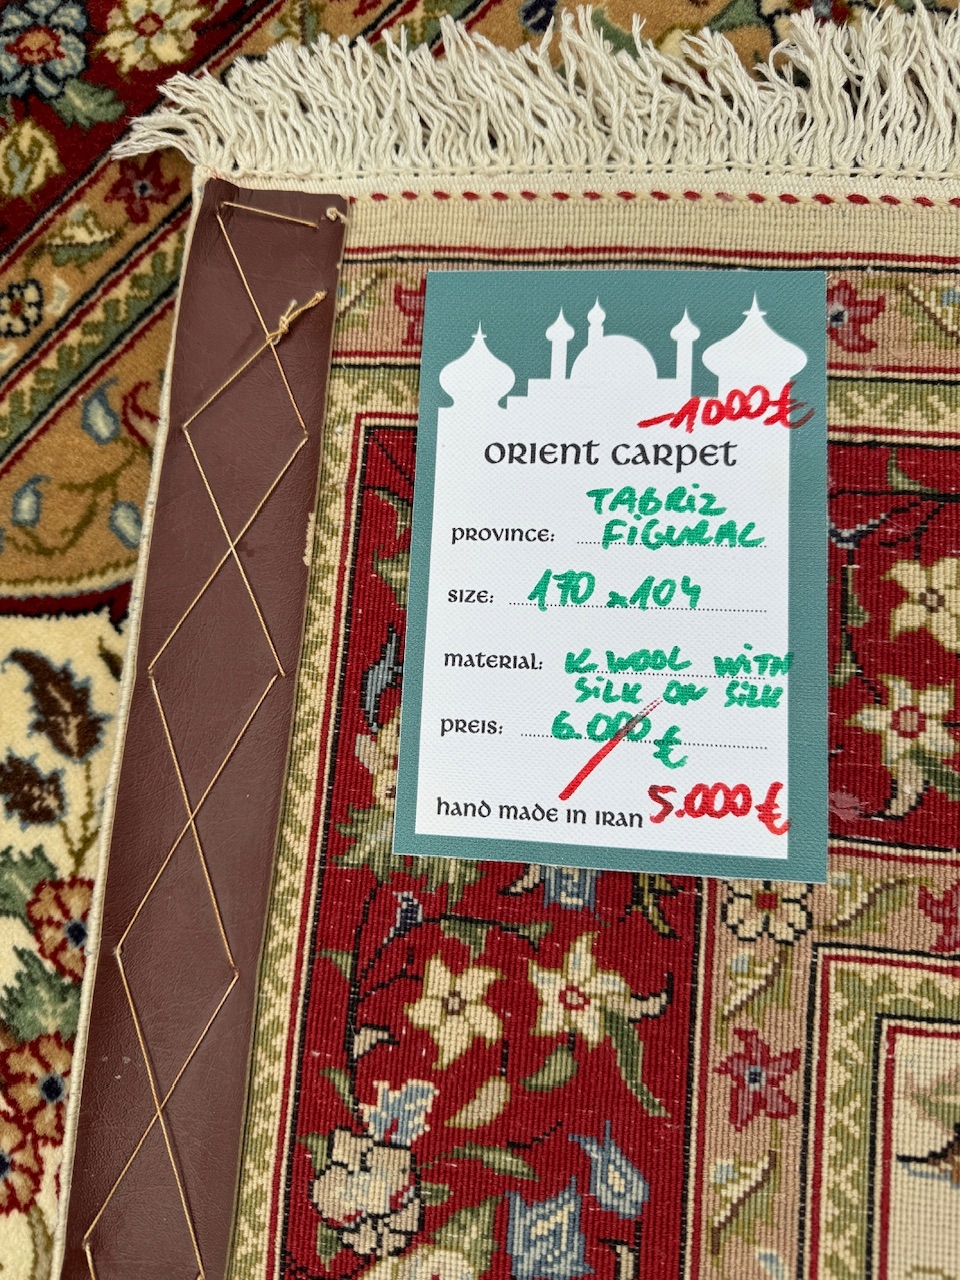 -1000€
ORIENT CARPET
TABRIZ
PROVINCE: FIGURAL
SIZE: 170 x 104
MATERIAL: K. WOOL WITH
SILK ON SILK
PREIS: 6.000 €
HAND MADE IN IRAN 5.000 €